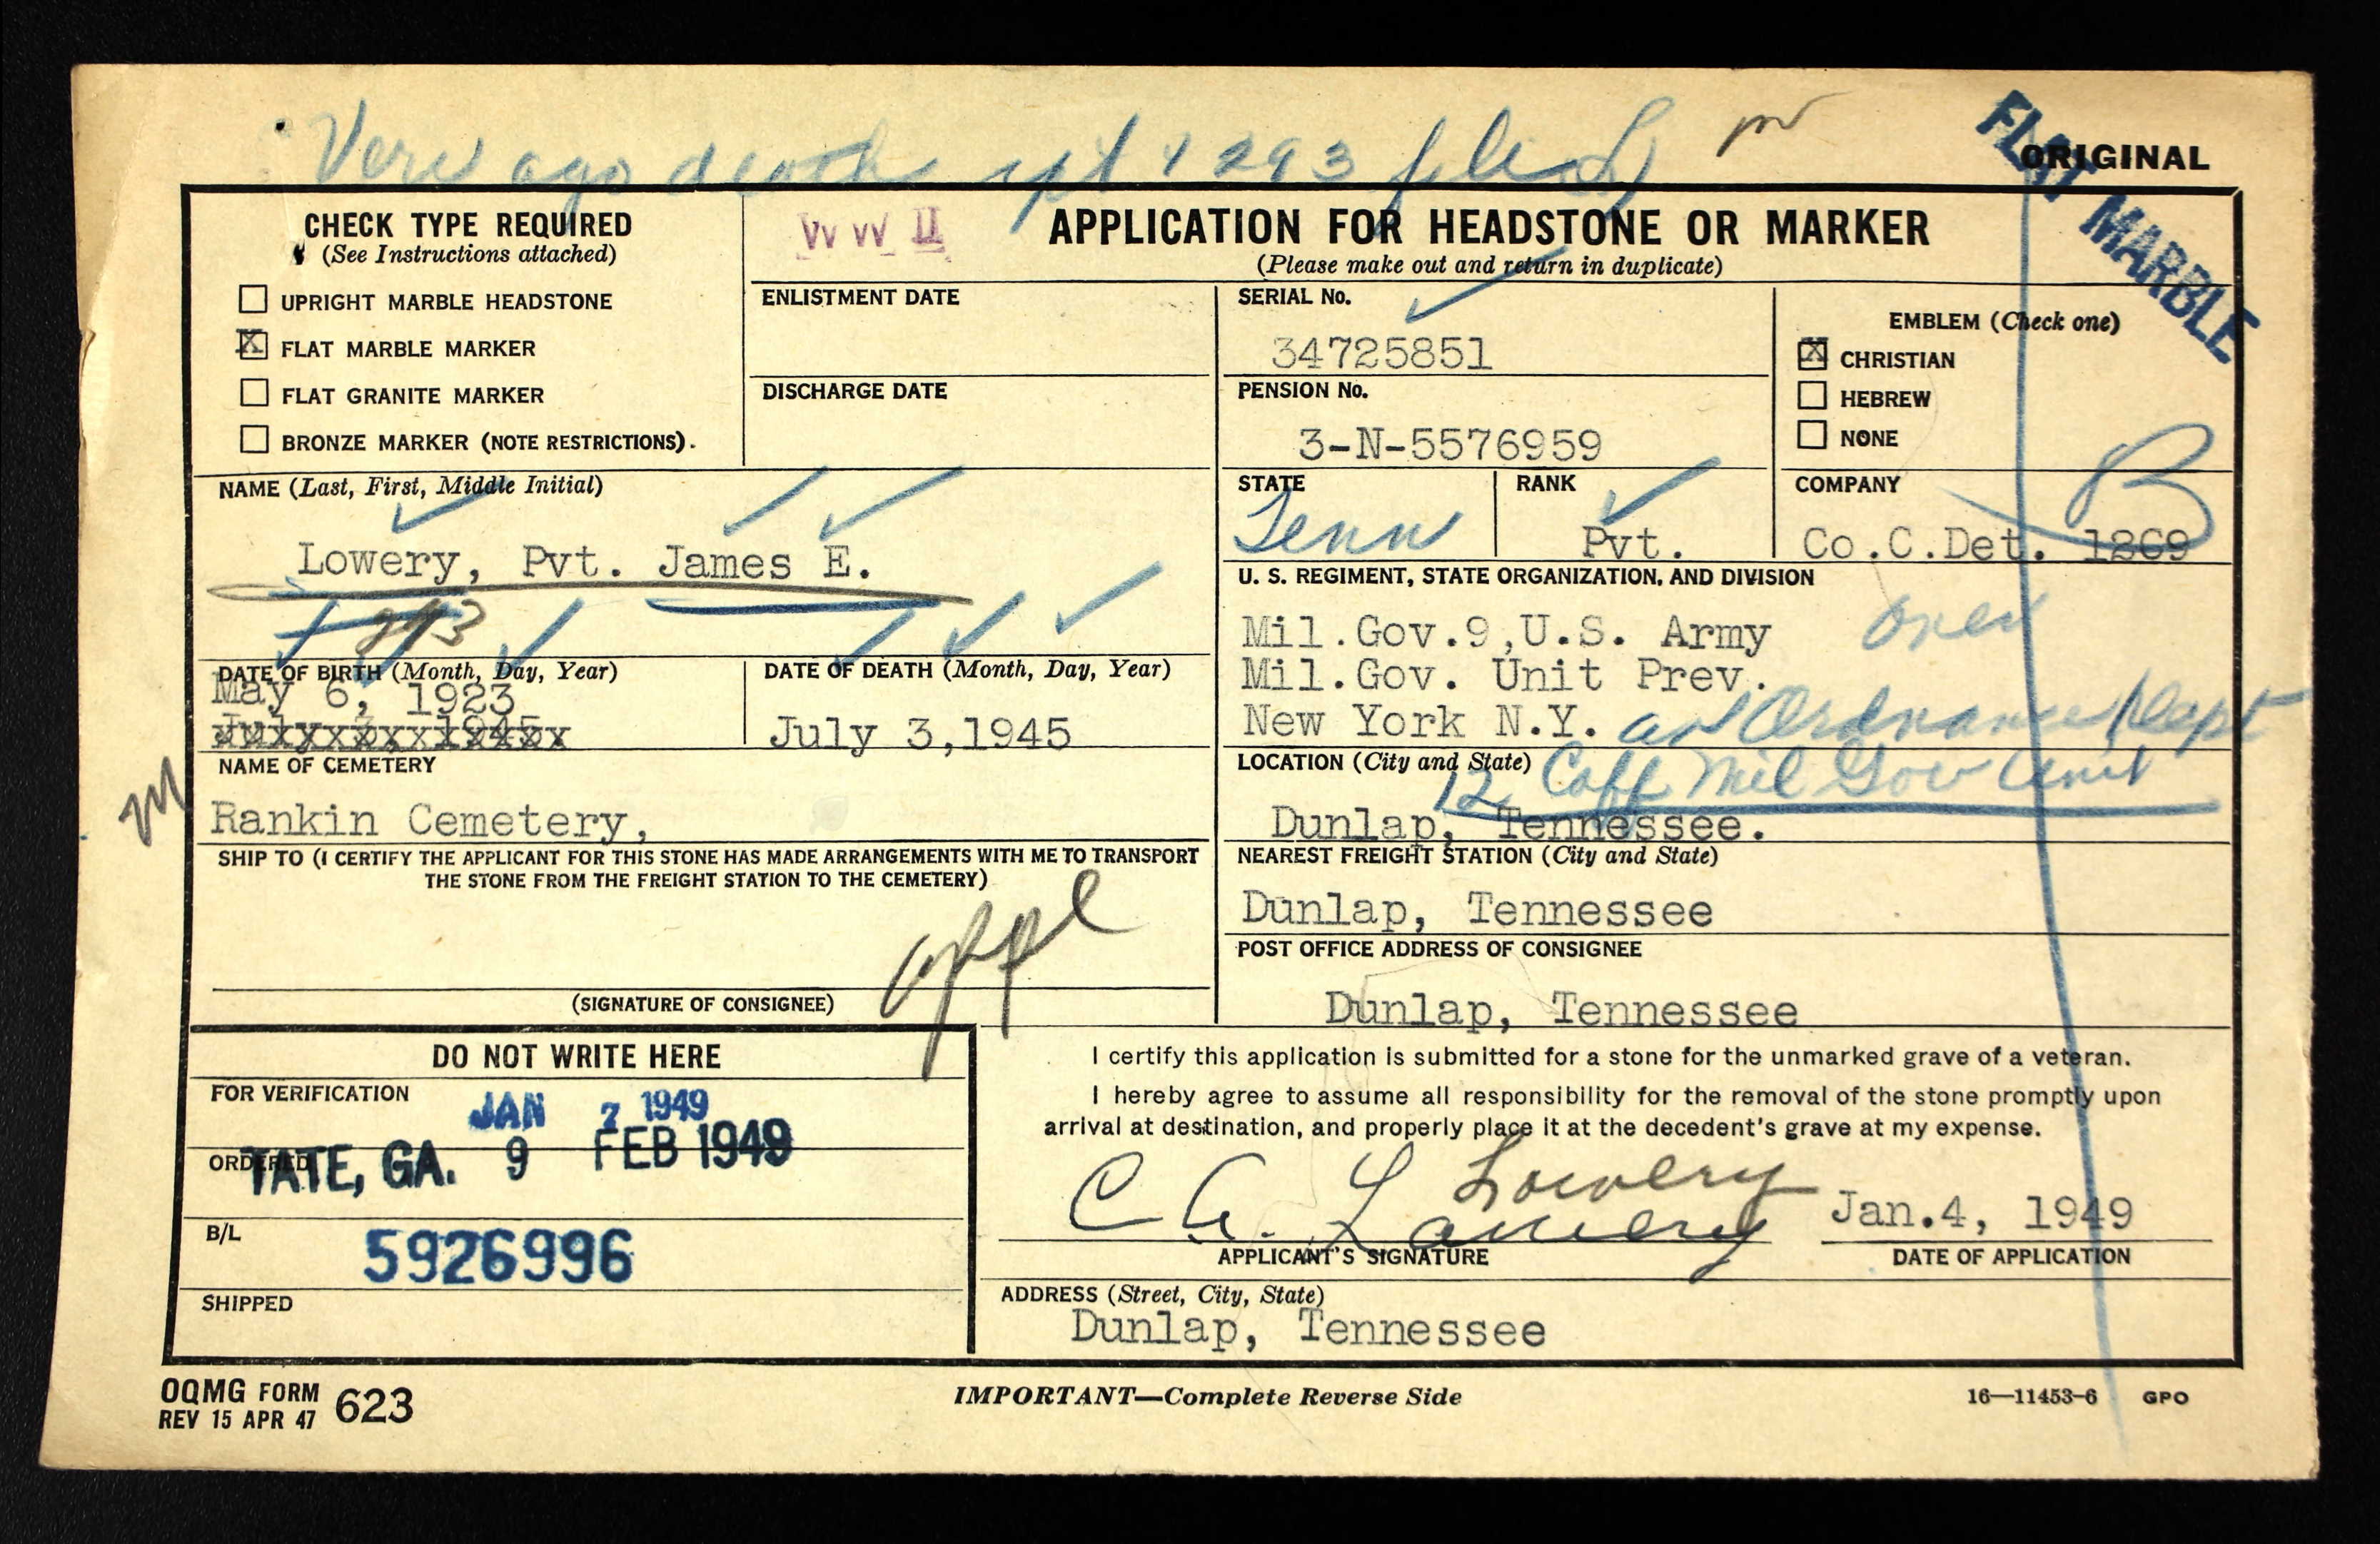 death rpt 1293 filed
ORIGINAL
FLAT MARBLE
CHECK TYPE REQUIRED
(See Instructions attached)
UPRIGHT MARBLE HEADSTONE
X FLAT MARBLE MARKER
FLAT GRANITE MARKER
BRONZE MARKER (NOTE RESTRICTIONS).
WW II
APPLICATION FOR HEADSTONE OR MARKER
(Please make out and return in duplicate)
ENLISTMENT DATE
DISCHARGE DATE
SERIAL No.
34725851
PENSION No.
3-N-5576959
EMBLEM (Check one)
X CHRISTIAN
HEBREW
NONE
NAME (Last, First, Middle Initial)
Lowery, Pvt. James E.
STATE
Tenn
RANK
Pvt.
COMPANY
B
Co.C.Det. 1269
U. S. REGIMENT, STATE ORGANIZATION, AND DIVISION
Mil.Gov.9,U.S. Army
Mil.Gov. Unit Prev.
New York N.Y. Ordnance Dept
293
DATE OF BIRTH (Month, Day, Year)
May 6, 1923
July 3, 1945
DATE OF DEATH (Month, Day, Year)
July 3,1945
NAME OF CEMETERY
Rankin Cemetery,
LOCATION (City and State)
12 Mil Gov Unit
Dunlap, Tennessee.
SHIP TO (I CERTIFY THE APPLICANT FOR THIS STONE HAS MADE ARRANGEMENTS WITH ME TO TRANSPORT
THE STONE FROM THE FREIGHT STATION TO THE CEMETERY)
appl
(SIGNATURE OF CONSIGNEE)
NEAREST FREIGHT STATION (City and State)
Dunlap, Tennessee
POST OFFICE ADDRESS OF CONSIGNEE
Dunlap, Tennessee
DO NOT WRITE HERE
FOR VERIFICATION
JAN 7 1949
ORDERED
TATE, GA. 9 FEB 1949
B/L
5926996
SHIPPED
I certify this application is submitted for a stone for the unmarked grave of a veteran.
I hereby agree to assume all responsibility for the removal of the stone promptly upon
arrival at destination, and properly place it at the decedent's grave at my expense.
Lowery
C. A. Lowery
Jan.4, 1949
APPLICANT'S SIGNATURE
DATE OF APPLICATION
ADDRESS (Street, City, State)
Dunlap, Tennessee
OQMG FORM 623
REV 15 APR 47
IMPORTANT—Complete Reverse Side
16—11453-6 GPO